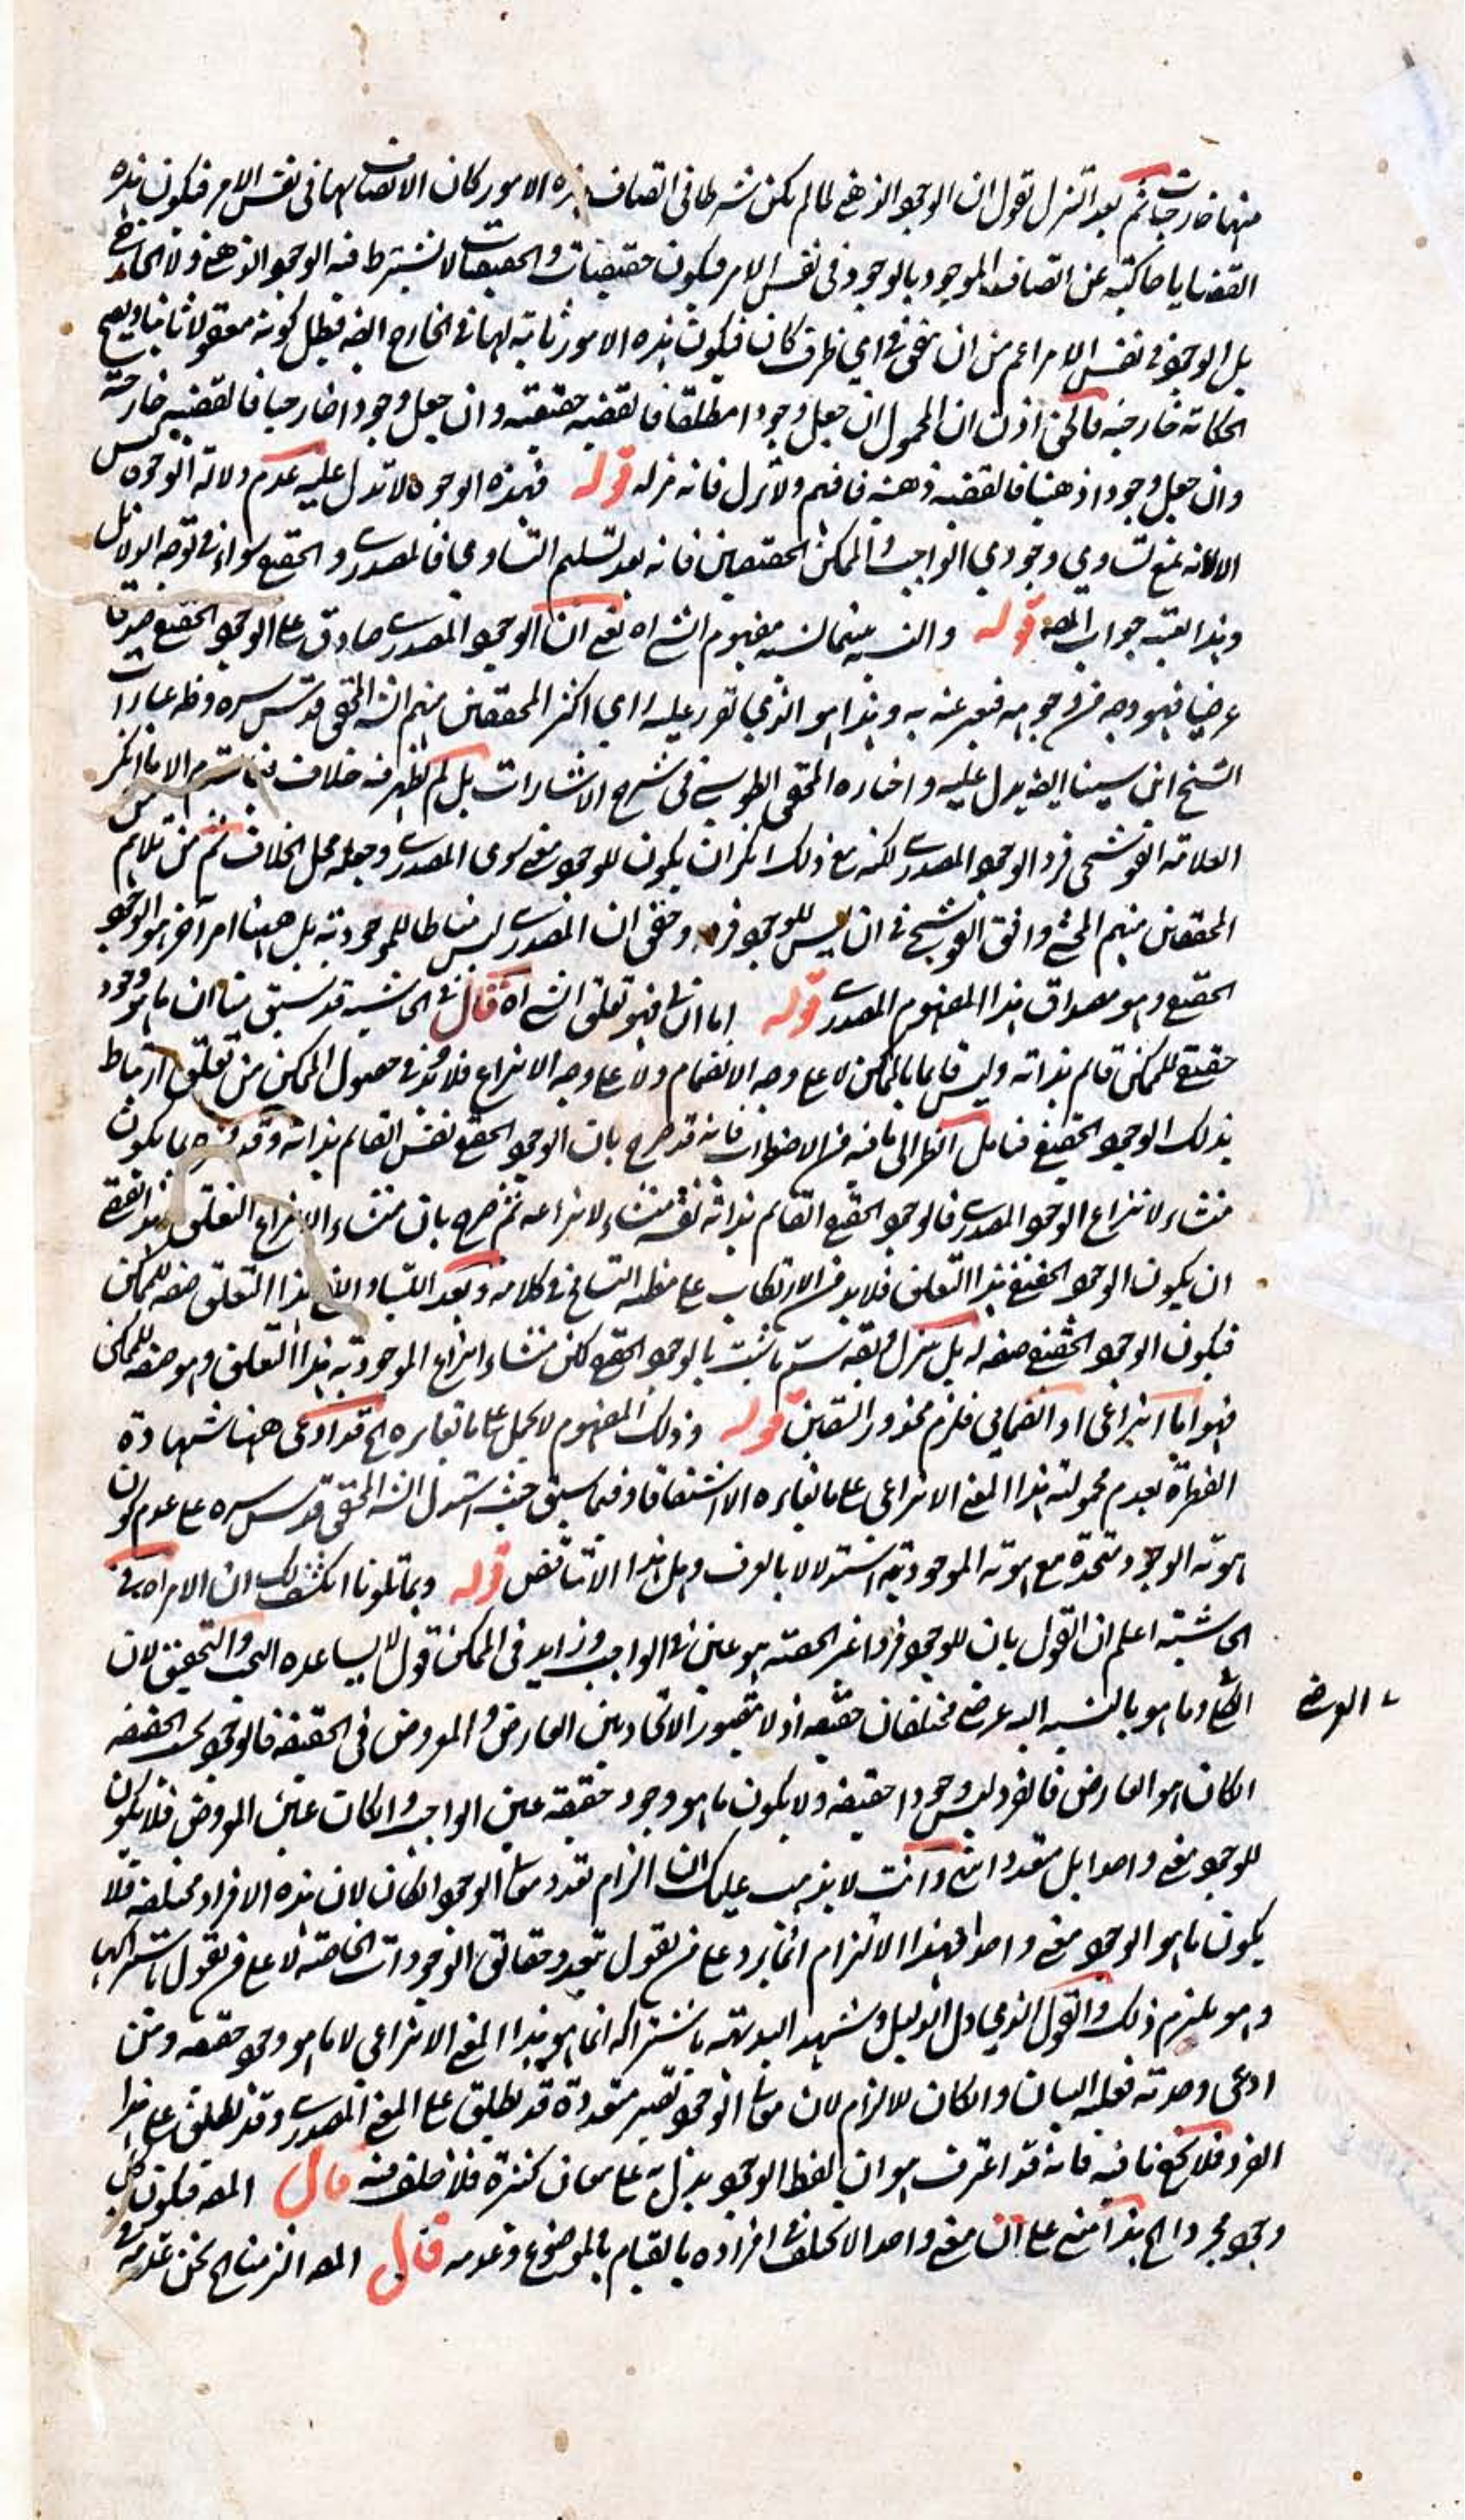 منها خارجيات ثم بعد التنزل نقول ان الوجود الذهني لما لم يكن شرطا في اتصاف هذه الامور كان الاتصاف بها في نفس الامر فيكون هذه
القضايا حاكية عن اتصاف الموجود بالوجود في نفس الامر فيكون حقيقيات والحقيقيات لا يشترط فيه الوجود الذهني ولا الخارجي
بل الوجود في نفس الامر اعم من ان تحقق في اي ظرف كان فيكون هذه الامور ثابتة لها في الخارج ايضا فبطل كونه معقولا ثانيا ويصح
الحكاية خارجية فالحق اذن ان المحمول ان جعل وجودا مطلقا فالقضية حقيقية وان جعل وجودا خارجيا فالقضية خارجية
وان جعل وجودا ذهنيا فالقضية ذهنية فافهم ولا تزل فانه مزلة قوله فهذه الوجوه لا تدل عليه عدم دلالة الوجوه ليس
الا لانه يمنع تساوي وجودي الواجب والممكن الحقيقيين فانه بعد تسليم التساوي فالمصدري والحقيقي سواء في توجه الدلائل
وهذا بعينه جواب المصـ قوله والنسبة بينهما نسبة مفهوم الشيء اه يعني ان الوجود المصدري صادق على الوجود الحقيقي صدقا
عرضيا فهو وجه من وجوهه فيعبر عنه به وهذا هو الذي تقرر عليه راي اكثر المحققين منهم الشـ المحقق قدس سره وظ عبارات
الشيخ ابن سينا ايضا يدل عليه واختاره المحقق الطوسي في شرح الاشارات بل لم يظهر فيه خلاف الا ما انكر
العلامة القوشجي فرد الوجود المصدري لكنه مع ذلك انكر ان يكون للوجود معنى سوى المصدري وجعله محل الخلاف ثم من
المحققين منهم المحشي وافق القوشجي في ان ليس للوجود فرد وحقق ان المصدري ليس مناطا للموجودية بل ههنا امر آخر هو الوجود
الحقيقي وهو مصداق هذا المفهوم المصدري قوله اما الثاني فهو تعلق الشيء اه قال في الحاشية قد سبق منا ان ما هو وجود
حقيقي للممكن قائم بذاته وليس قائما بالممكن لا على وجه الانضمام ولا على وجه الانتزاع فلا بد في حصول الممكن من تعلق وارتباط
بذلك الوجود الحقيقي فتامل انظر الى ما فيه من الاضطراب فانه قد صرح بان الوجود الحقيقي نفس القائم بذاته وقد فسره بما يكون
منشاء لانتزاع الوجود المصدري فالوجود الحقيقي القائم بذاته نفسه منشاء لانتزاعه ثم صرح بان منشاء الانتزاع التعلق وهذا يقتضي
ان يكون الوجود الحقيقي هذا التعلق فلا بد من الارتكاب على مظنة التسامح في كلامه وبعد اللتيا والتي هذا التعلق صفة للممكن
فيكون الوجود الحقيقي صفة له بل نزل وبقه سم ما شئت بالوجود الحقيقي لكن منشاء انتزاع الموجودية هذا التعلق وهو صفة للممكن
فهو اما انتزاعي او انضمامي فلزم محذور الشقين قوله وذلك المفهوم لا يحمل على ما تغايره الخ قد ادعى ههنا شهادة
الفطرة بعدم محمولية هذا المعنى الانتزاعي على ما تغايره الا اشتقاقا وفيما سبق حيث استدل الشـ المحقق قدس سره على عدم كون
هوية الوجود متحدة مع هوية الموجودية استدلالا بالعرف وهل هذا الا تناقض قوله وبما تلونا انكشف لك ان الامر اه في
الحاشية اعلم ان القول بان للوجود فردا غير الحصة هو عين في الواجب وزايد في الممكن قول لا يساعده النظر والتحقيق لان
الشيء وما هو بالنسبة اليه عرضي مختلفان حقيقة اذ لا يتصور الاتحاد بين العارض والمعروض في الحقيقة فالوجود بحسب الحقيقة
ان كان هو العارض فالفرد ليس وجودا حقيقة ولا يكون ما هو وجود حقيقة عين الواجب وان كانت عين المعروض فلا يكون
للوجود معنى واحدا بل متعددا انتهى وانت لا يذهب عليك ان الزام تعدد معاني الوجود ان كان لان هذه الافراد مختلفة فلا
يكون ما هو الوجود معنى واحدا فهذا الالزام انما يرد على من يقول بتعدد حقائق الوجودات الخاصة لا على من يقول باشتراكها
وهو يلتزم ذلك والقول الذي دل الدليل وشهد البديهة باشتراكه انما هو هذا المعنى الانتزاعي لا ما هو وجود حقيقة ومن
ادعى وحدته فعليه البيان وان كان للالزام لان معاني الوجود تصير متعددة قد يطلق على المعنى المصدري وقد يطلق على هذا
الفرد فلا يخفى ما فيه فانه قد اعترف هو ان لفظ الوجود يدل به على معان كثيرة فلا خلف فيه قال المصـ فيكون كل
وجود مجردا الخ هذا مبني على ان معنى واحدا لا يختلف افراده بالقيام بالموضوع وعدمه قال المصـ التزمنا الخ نحن عدمه
العرض